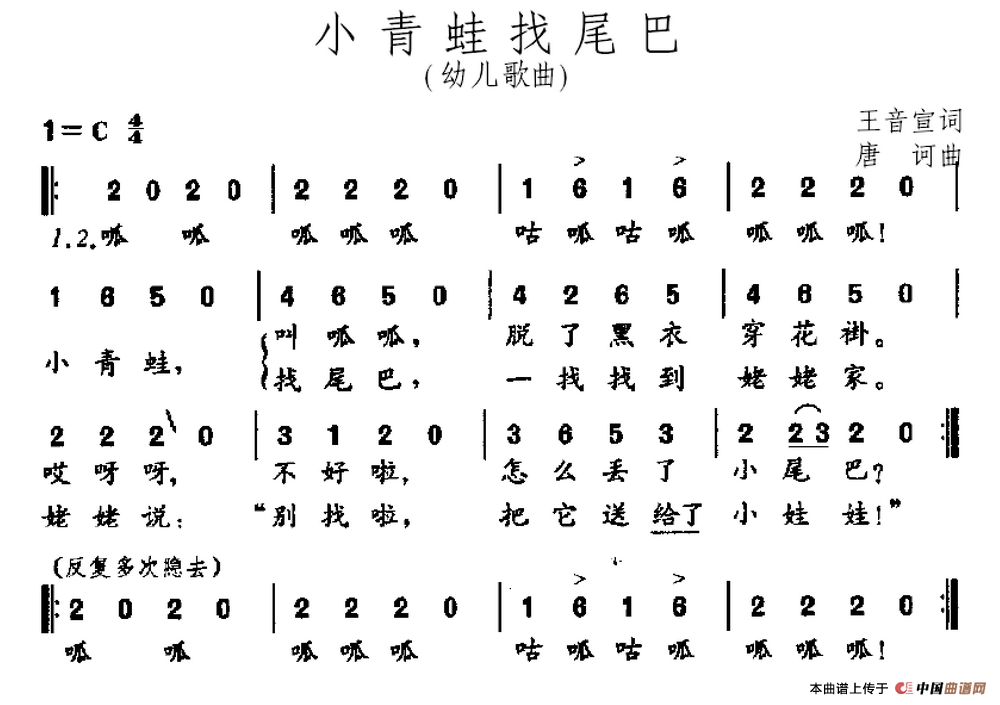 小青蛙找尾巴
(幼儿歌曲)
1=C 4/4
王音宣词
唐 诃曲
2 0 2 0 | 2 2 2 0 | 1 6 1 6 | 2 2 2 0 |
1.2.呱 呱 呱 呱 呱 咕 呱 咕 呱 呱 呱 呱!
1 6 5 0 | 4 6 5 0 | 4 2 6 5 | 4 6 5 0
小 青 蛙, 叫 呱 呱, 脱 了 黑 衣 穿 花 褂。
找 尾 巴, 一 找 找 到 姥 姥 家。
2 2 2 0 | 3 1 2 0 | 3 6 5 3 | 2 2 3 2 0
哎 呀 呀, 不 好 啦, 怎 么 丢 了 小 尾 巴?
姥 姥 说: “别 找 啦, 把 它 送 给了 小 娃 娃!”
(反复多次隐去)
2 0 2 0 | 2 2 2 0 | 1 6 1 6 | 2 2 2 0
呱 呱 呱 呱 呱 咕 呱 咕 呱 呱 呱 呱!
本曲谱上传于 中国曲谱网